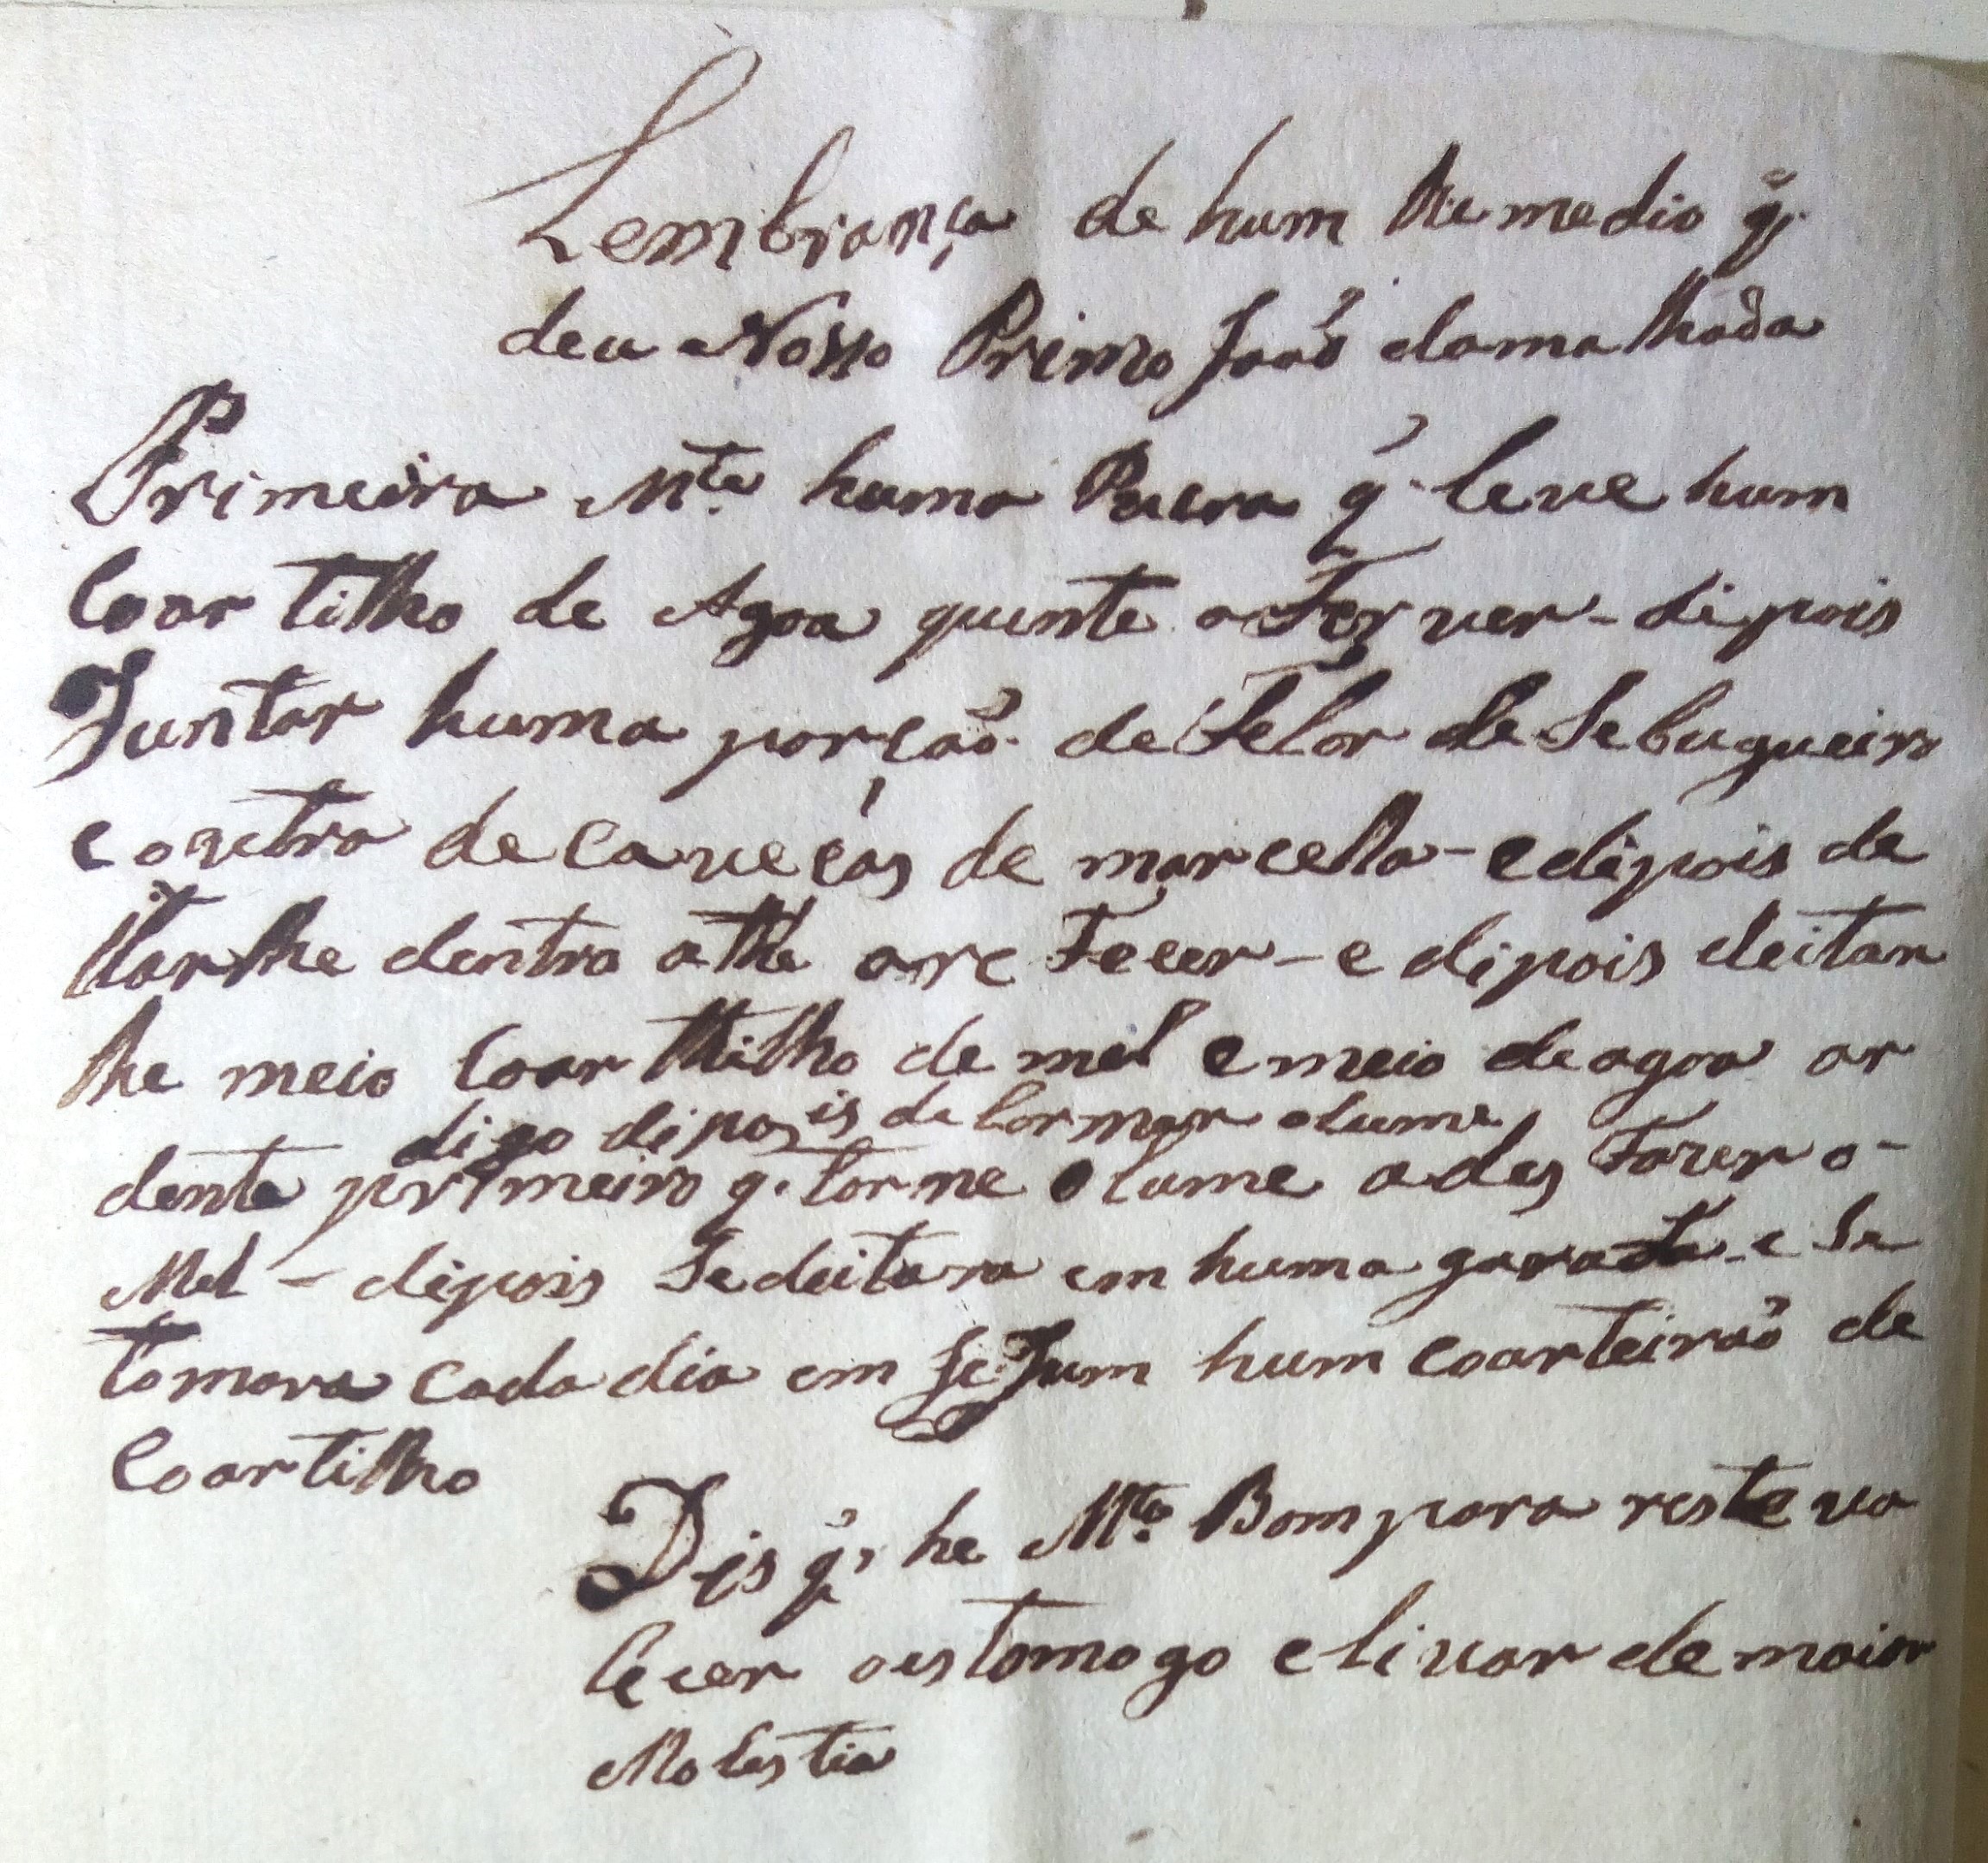 Lembrança de hum Remedio q̃
deu Nosso Primo Joaõ damalhada
Primeira Mte. huma Pucra q̃ leve hum
Coartilho de Agoa quente a Ferver - dipois
Juntar huma porçaõ de Felor de Sebugueiro
e outra de caveças de marcella - e dipois de
ttarlhe dentro athe areFecer - e dipois deitar
lhe meio Coarthilho de mel e meio de agoa ar
digo dipois de tormar olume
dente primeiro q. torne o lume a des Fazer o -
Mel - dipois Se deitara em huma garaafa e Se
tomara cada dia em JeJum hum coarteiraõ de
Coartilho
Dis q̃ he Mto. Bom para reste va
lecer oestomogo e livar de maior
Molestia